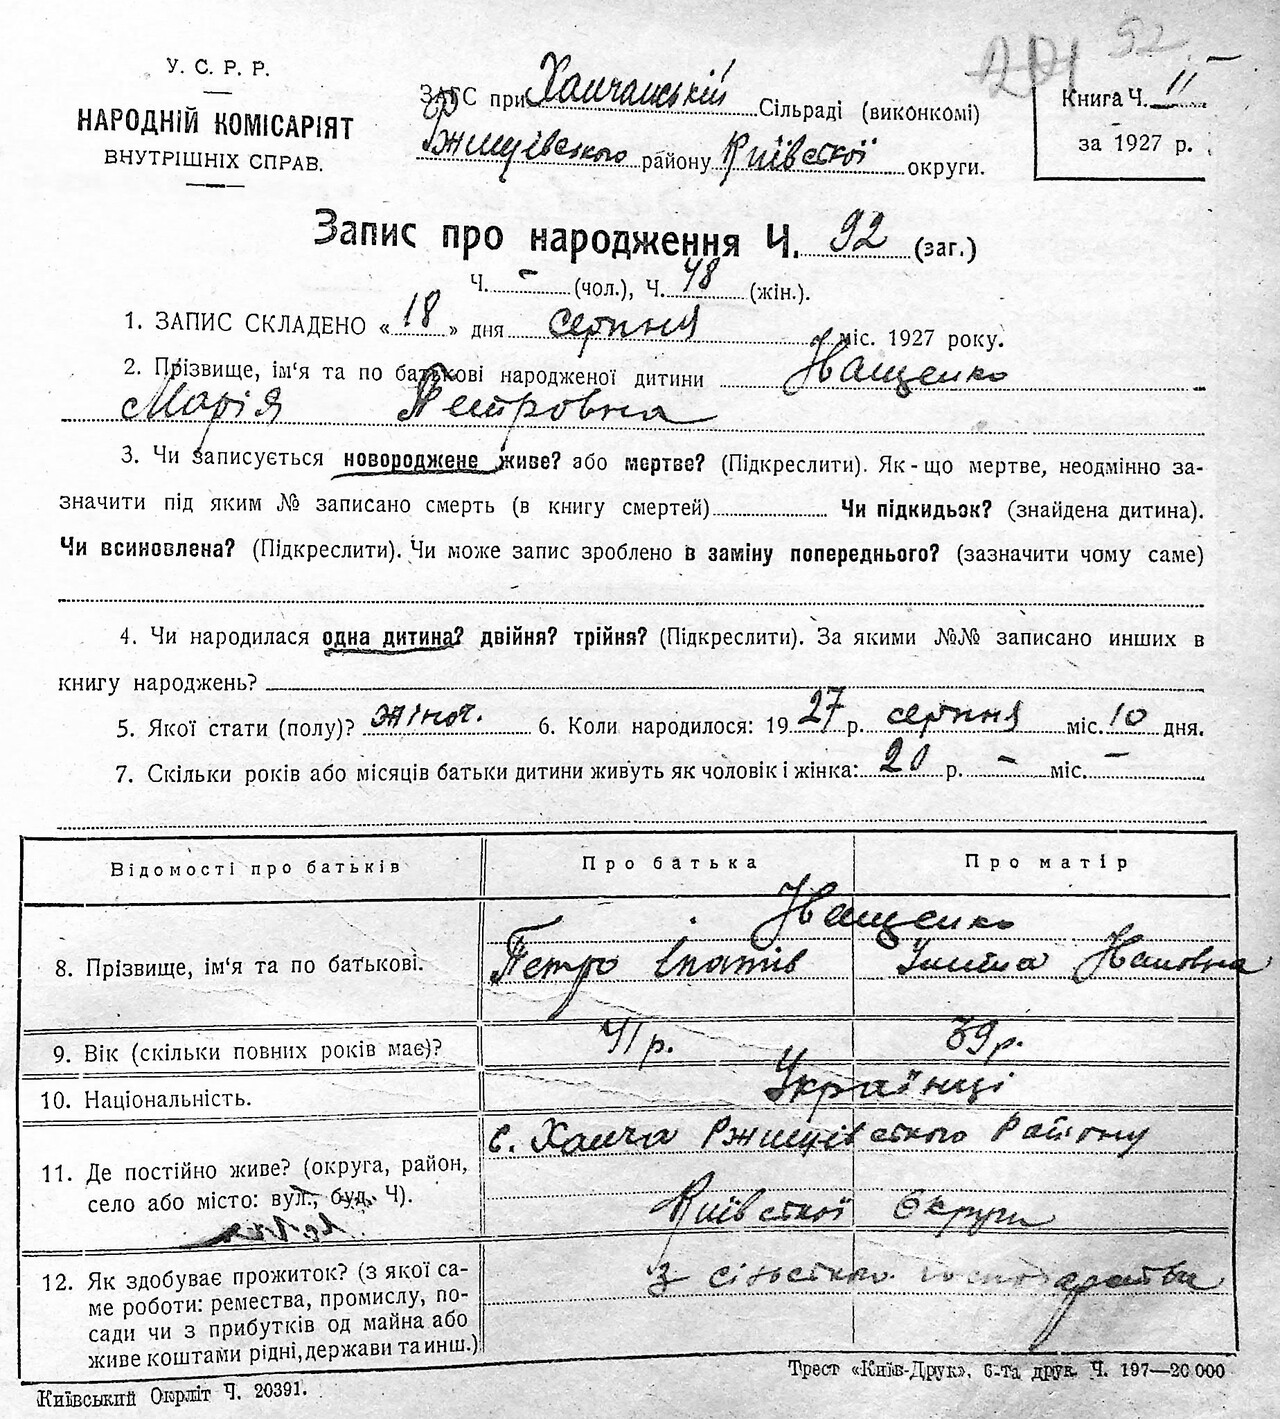 201 92
У. С. Р. Р.
НАРОДНІЙ КОМІСАРІЯТ
ВНУТРІШНІХ СПРАВ.
ЗАГС при Ханчанській Сільраді (виконкомі)
Ржищівського району Київської округи.
Книга Ч. II
за 1927 р.
Запис про народження Ч. 92 (заг.)
Ч. - (чол.), Ч. 48 (жін.).
1. ЗАПИС СКЛАДЕНО « 18 » дня серпня міс. 1927 року.
2. Прізвище, ім‘я та по батькові народженої дитини Іващенко
Марія Петровна
3. Чи записується новороджене живе? або мертве? (Підкреслити). Як-що мертве, неодмінно за-
значити під яким № записано смерть (в книгу смертей) Чи підкидьок? (знайдена дитина).
Чи всиновлена? (Підкреслити). Чи може запис зроблено в заміну попереднього? (зазначити чому саме)
4. Чи народилася одна дитина? двійня? трійня? (Підкреслити). За якими №№ записано инших в
книгу народжень?
5. Якої стати (полу)? жіноч. 6. Коли народилося: 19 27 р. серпня міс. 10 дня.
7. Скільки років або місяців батьки дитини живуть як чоловік і жінка: 20 р. - міс. -
Відомості про батьків Про батька Про матір
Іващенко
8. Прізвище, ім‘я та по батькові. Петро Івановна
9. Вік (скільки повних років має)? 41 р. 39 р.
10. Національність. Українці
11. Де постійно живе? (округа, район, село або місто: вул., буд. Ч).
с. Ханча Ржищівського Району
Київської Округи
12. Як здобуває прожиток? (з якої са-
ме роботи: ремества, промислу, по-
сади чи з прибутків од майна або
живе коштами рідні, держави та инш.)
з сільського господарства
Київський Окрліт Ч. 20391.
Трест «Київ-Друк», 6-та друк. Ч. 197—20 000